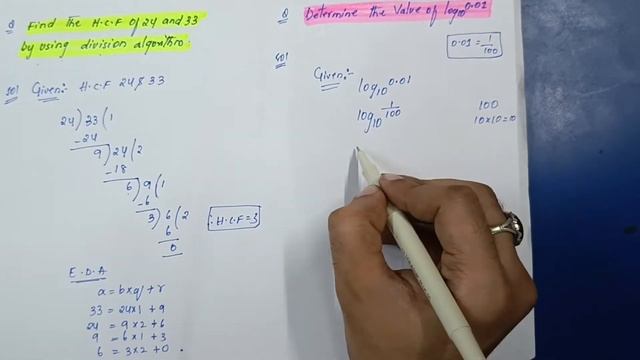 Q Find the H.C.F of 24 and 33
by using division algorithm.
Sol Given:- H.C.F 24 & 33
24) 33 (1
-24
9) 24 (2
-18
6) 9 (1
-6
3) 6 (2
6
0
∴ H.C.F = 3
E.D.A
a = b×q + r
33 = 24×1 + 9
24 = 9×2 + 6
9 = 6×1 + 3
6 = 3×2 + 0.
Q Determine the Value of log₁₀0.01
Sol
0.01 = 1/100
Given:- log₁₀0.01
log₁₀ 1/100
100